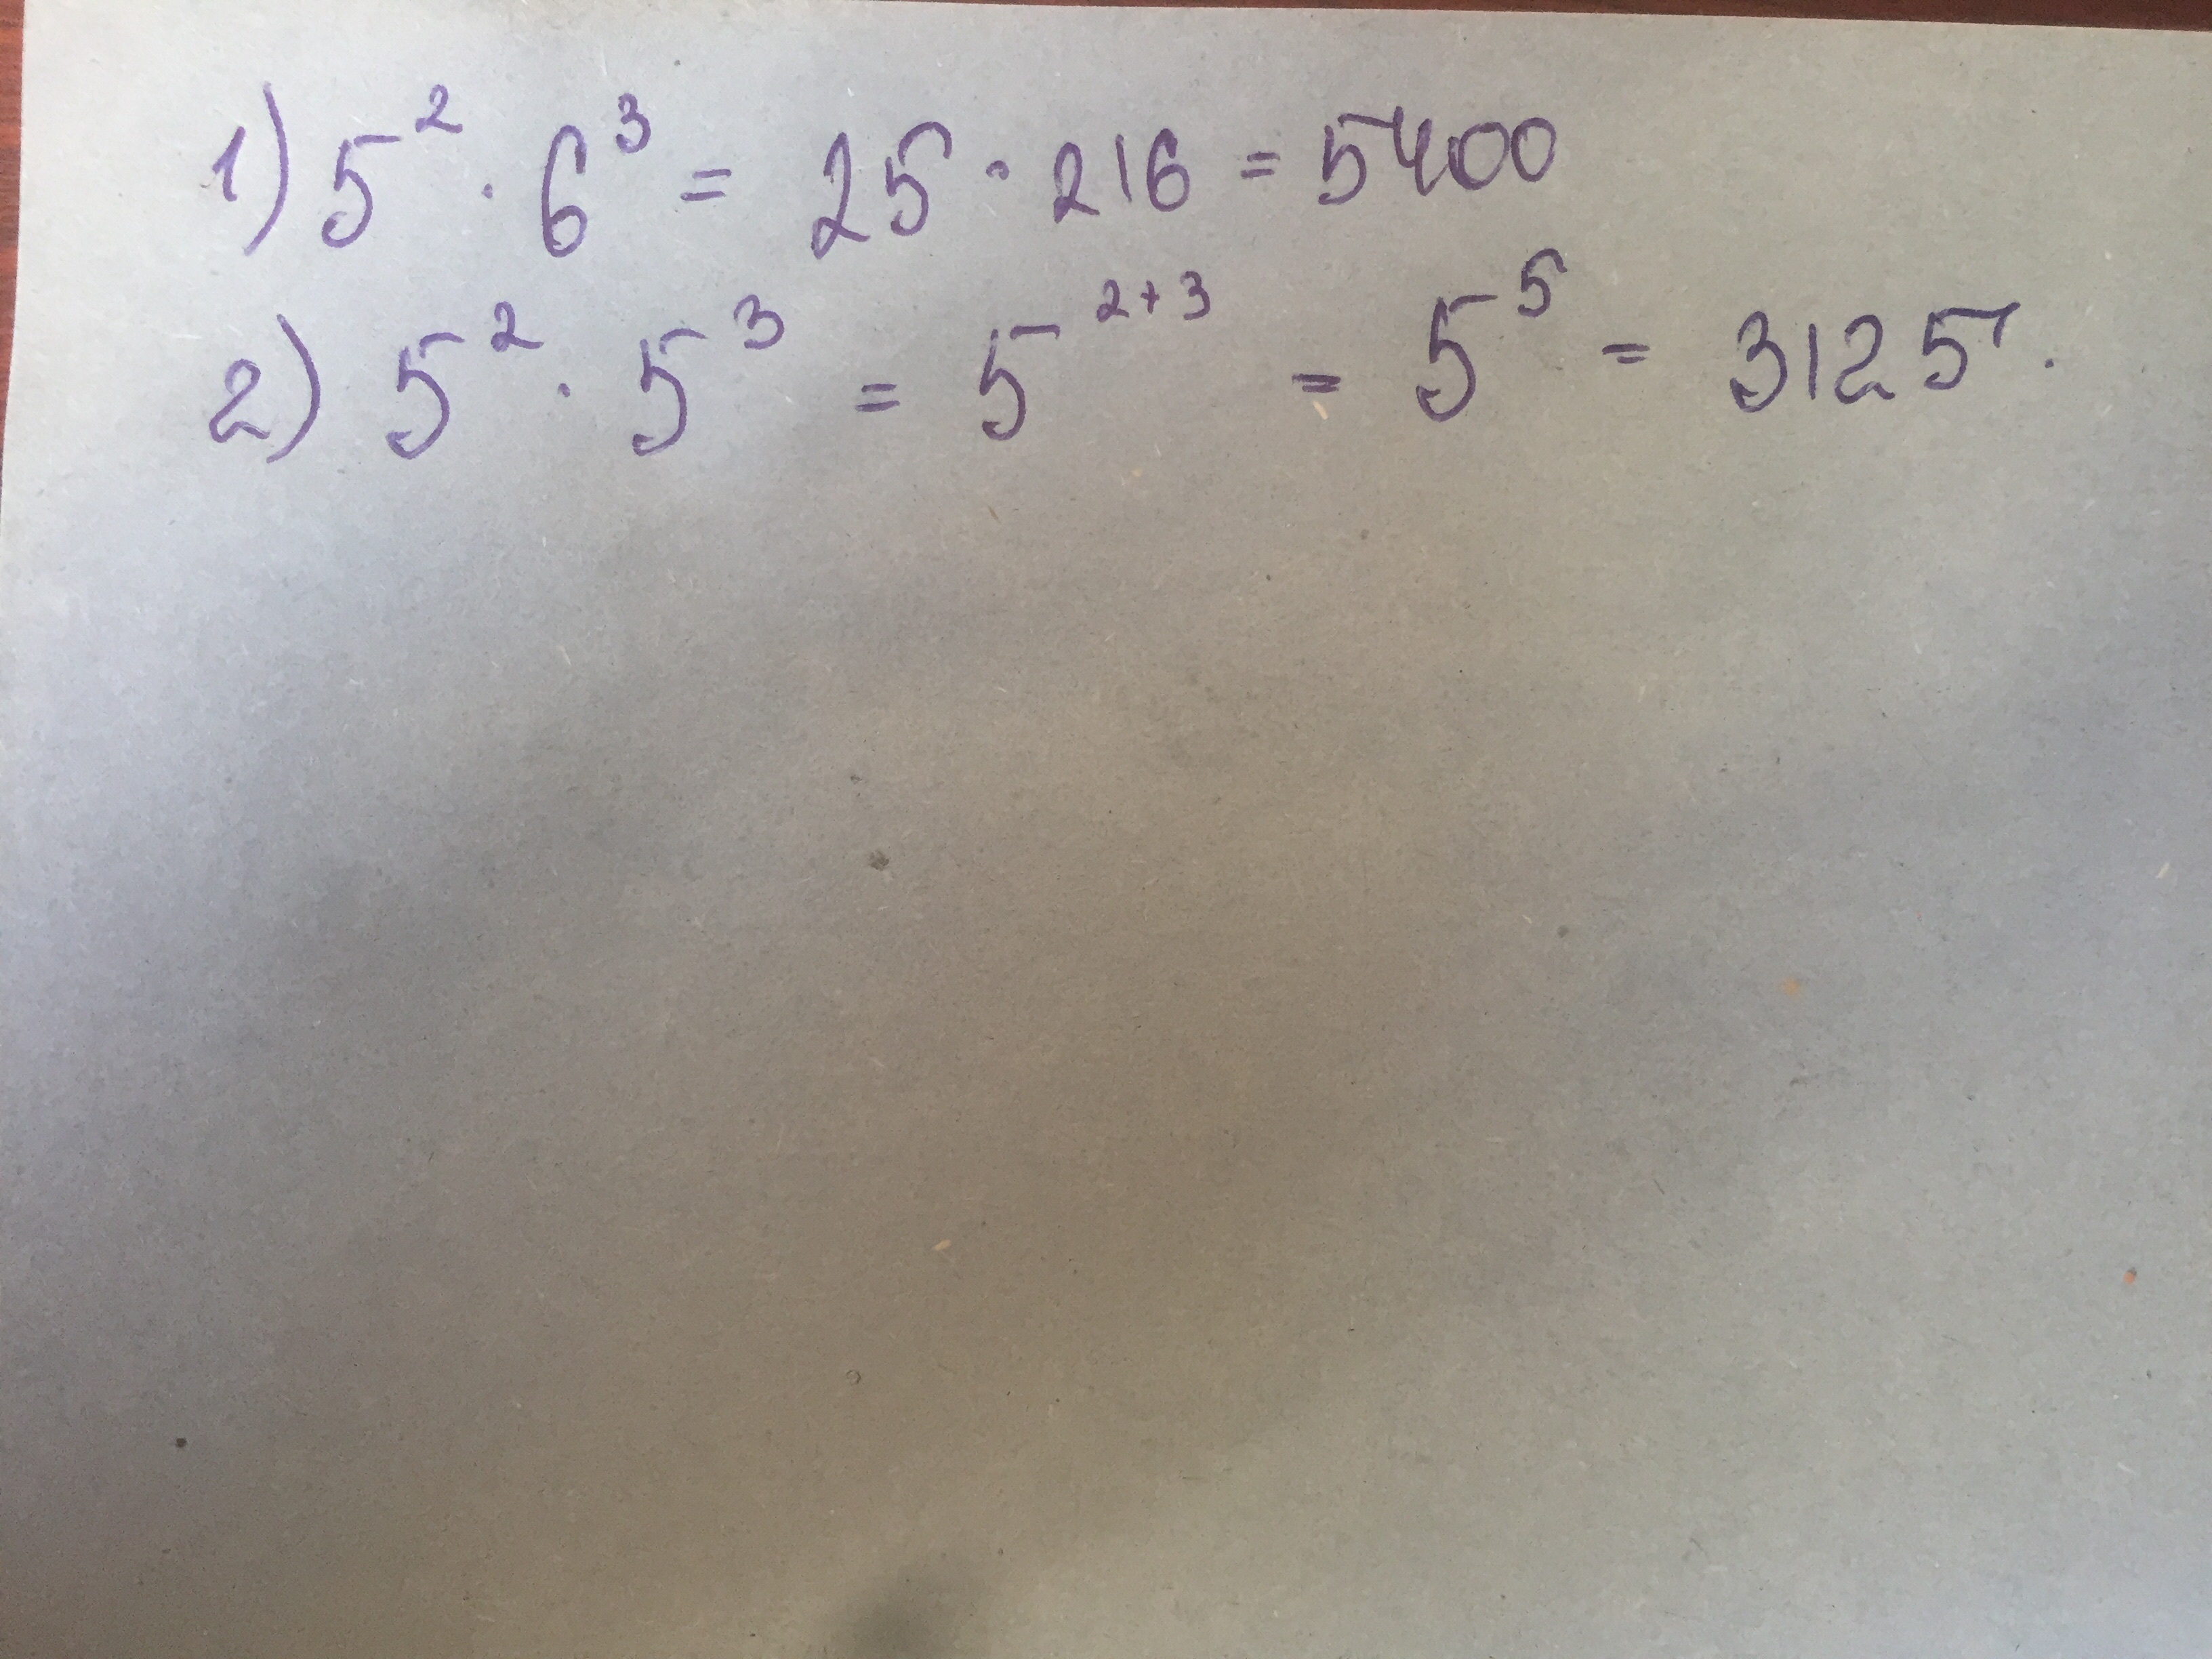 1) 5² · 6³ = 25 · 216 = 5400
2) 5² · 5³ = 5²⁺³ = 5⁵ = 3125.